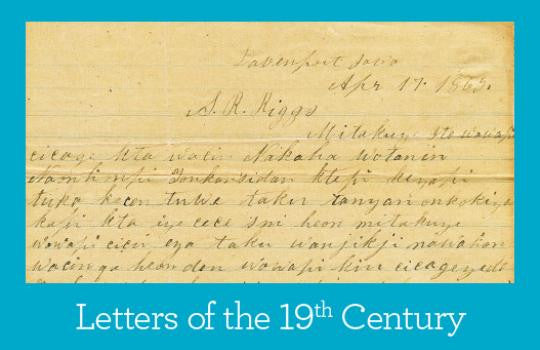 Davenport Iowa
Apr 17. 1865.
S. R. Riggs
Mitakuye Ito wowapi
cicage kta wacin Nakaha wotanin
Tonkansidan ktepi keyapi
tuka hecen tuwe taku tanyan onkokiya
kapi kta iye cece sni heon mitakuye
wowapi cicu eya taku wanjikji nawahon
wacin qa heon den wowapi kin
Letters of the 19th Century